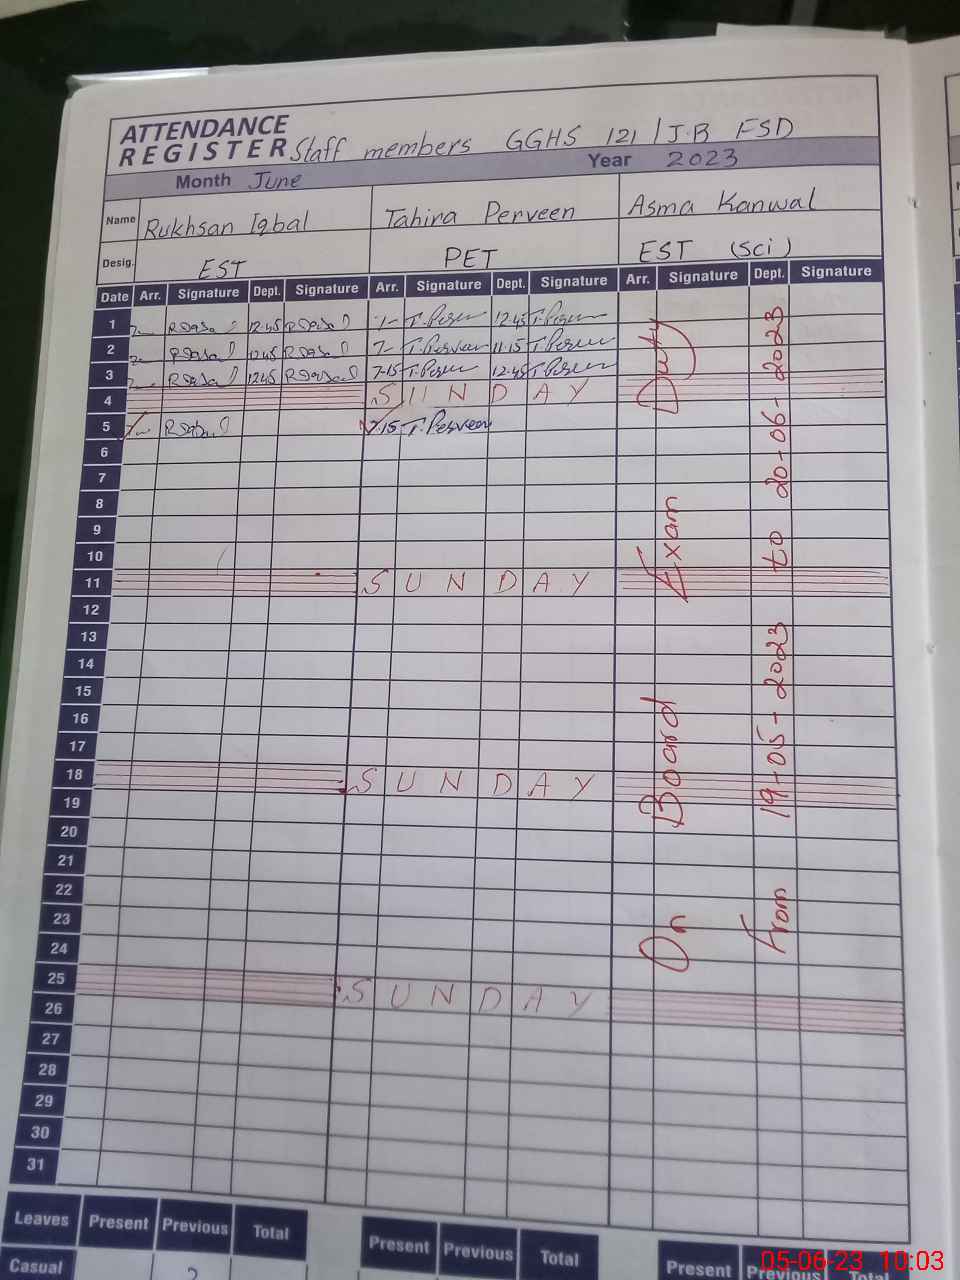 ATTENDANCE
REGISTER Staff members GGHS 121/J.B FSD
Month June Year 2023
Name Rukhsan Iqbal Tahira Perveen Asma Kanwal
Desig. EST PET EST (Sci)
Date Arr. Signature Dept. Signature Arr. Signature Dept. Signature Arr. Signature Dept. Signature
1 7- 12.45 7- 12.45
2 7- 12.45 7- T.Perveen 11.15
3 7- 12.45 7-15 12.45
4 SUNDAY
5 7- 7.15 T.Perveen
6
7
8
9
10
11 SUNDAY
12
13
14
15
16
17
18 SUNDAY
19
20
21
22
23
24
25 SUNDAY
26
27
28
29
30
31
On Board Exam Duty
From 19-05-2023 to 20-06-2023
Leaves Present Previous Total Present Previous Total Present Previous Total
Casual 2
05-06-23 10:03